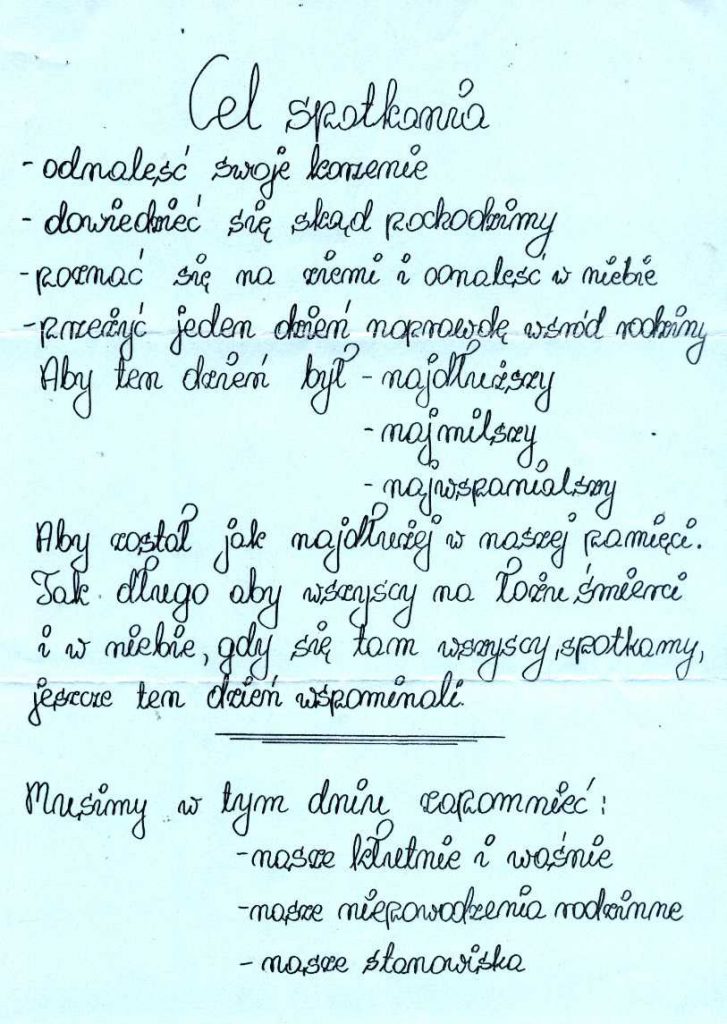 Cel spotkania
- odnaleść swoje korzenie
- dowiedzieć się skąd pochodzimy
- poznać się na ziemi i odnaleść w niebie
- przeżyć jeden dzień naprawdę wśród rodziny
Aby ten dzień był - najdłuższy
- najmilszy
- najwspanialszy
Aby został jak najdłużej w naszej pamięci.
Tak długo aby wszyscy na łożu śmierci
i w niebie, gdy się tam wszyscy spotkamy,
jeszcze ten dzień wspominali.
Musimy w tym dniu zapomnieć:
- nasze kłutnie i waśnie
- nasze niepowodzenia rodzinne
- nasze stanowiska